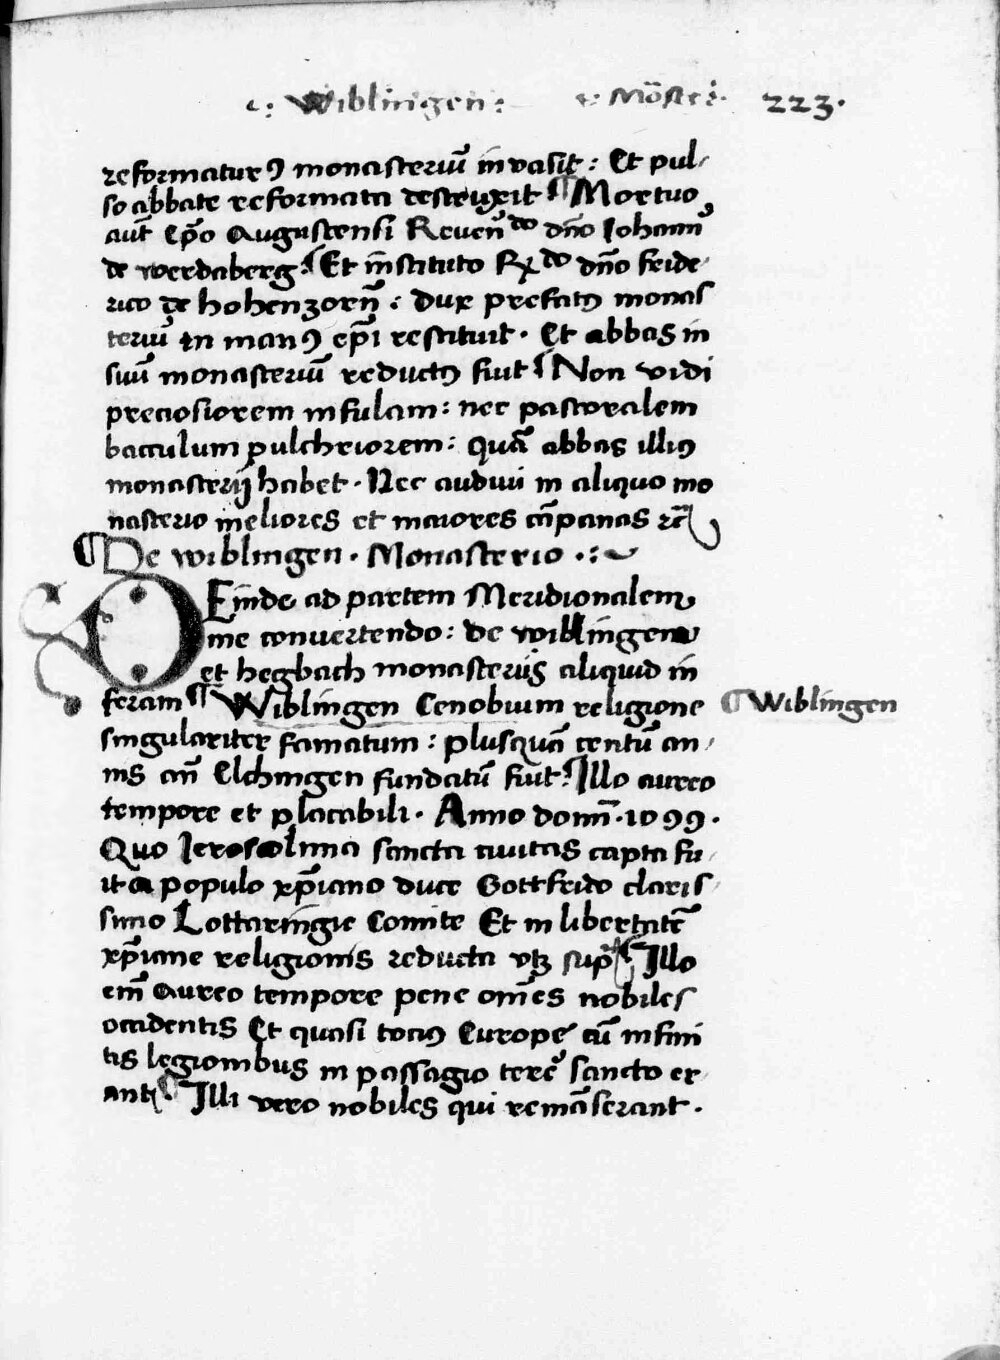 c: Wiblingen: c: Mōsteř. 223.
reformaturꝰ monasteriū invasit: Et pul-
so abbate reformata destruxit ¶ Mortuo
aūt ep̄o Augustensi Reveñ do dn̄o Iohann̄
de werdaberg. ¶ Et instituto Rdo dn̄o fride-
rico de hohenzorn̄: dux prefatꝰ monas
teriū in manꝰ ep̄i restituit. Et abbas in
suū monasteriū reductꝰ fuit ¶ Non vidi
preciosiorem infulam: nec pastoralem
bacculum pulchriorem: Quā abbas illiꝰ
monasterij habet. Nec audivi in aliquo mo
nasterio meliores et maiores cāpanas ꝛc̄
¶ De wiblingen. Monasterio.:~
DEinde ad partem Meridionalem
me convertendo: de wiblingen
et hegbach monasterijs aliquid in
feram ¶ Wiblingen Cenobium religione
¶ Wiblingen
singulariter famatum: plusquā centū an-
nis an̄ Elchingen fundatū fuit. ¶ Illo aureo
tempore et placabili. Anno domī. 1099.
Quo Ierosolima sancta civitas capta fu-
it a populo xp̄iano duce Gottfrido claris-
simo Lottaringie Comite Et in libertatē
xp̄iane religionis reducta vtꝫ sup̄ ¶ Illo
em̄ aureo tempore pene om̄es nobiles
occidentis Et quasi tociꝰ Europe cū infini
tis legionibus in passagio terre sancte er-
ant. ¶ Illi vero nobiles qui remāserant.